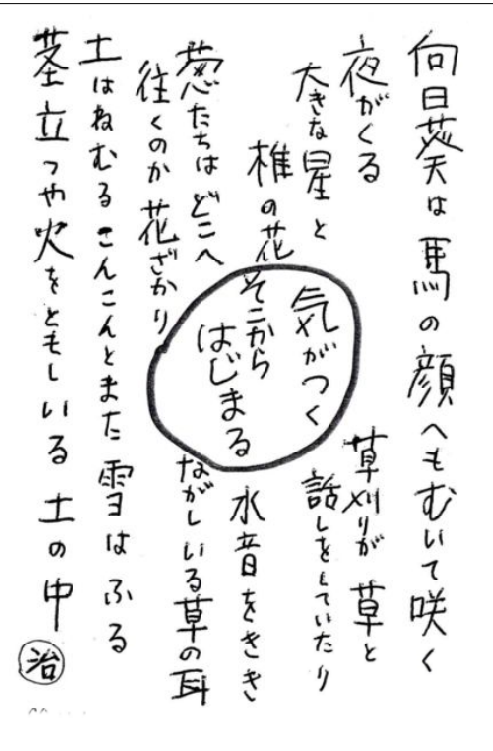 向日葵は馬の顔へもむいて咲く
夜がくる
大きな星と
椎の花
草刈りが草と
話しをしていたり
気がつく
そこから
はじまる
水音をきき
ながしいる草の耳
葱たちはどこへ
往くのか花ざかり
土はねむるこんこんとまた雪はふる
茎立つや火をともしいる土の中
治